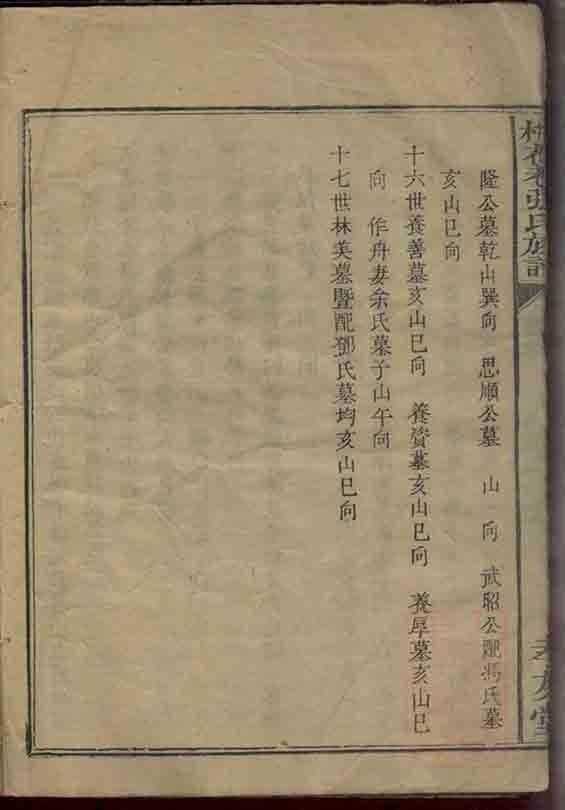 張氏族譜
隆公墓乾山巽向　思順公墓　山　向　武昭公配馮氏墓
亥山巳向
十六世養善墓亥山巳向　養資墓亥山巳向　養厚墓亥山巳
向　作舟妻余氏墓子山午向
十七世林美墓暨配鄧氏墓均亥山巳向